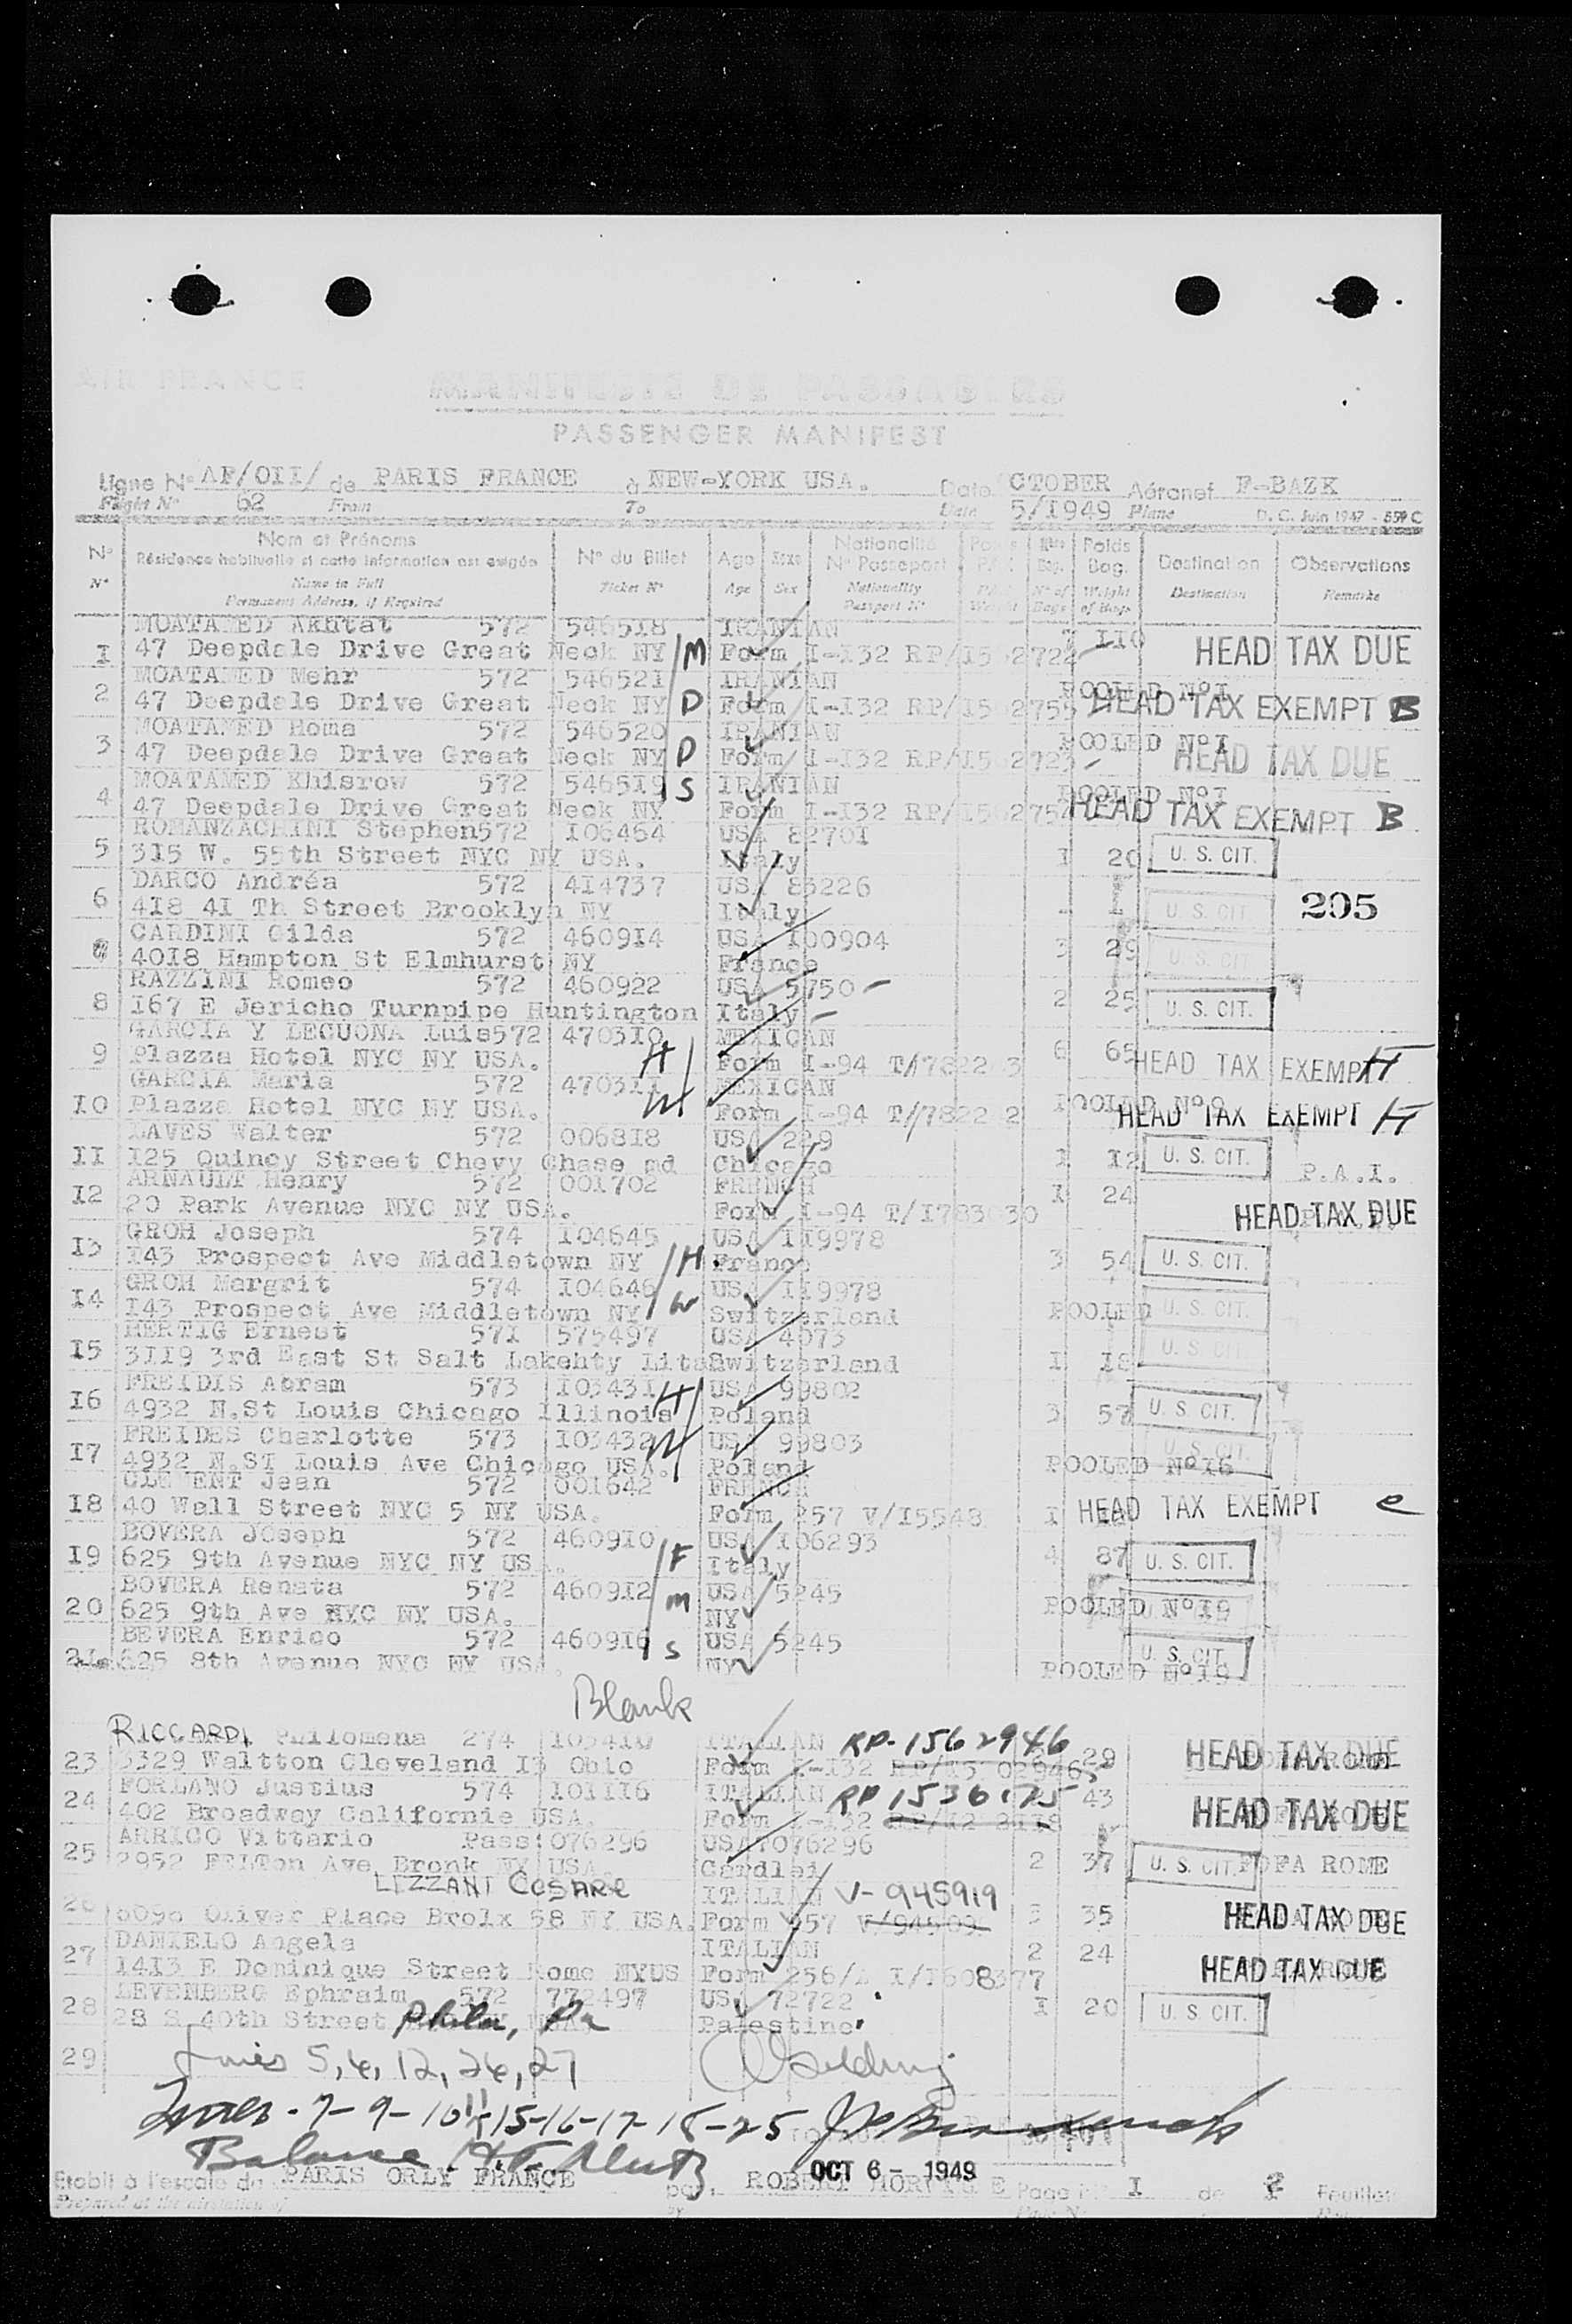 AIR FRANCE
MANIFESTE DE PASSAGERS
PASSENGER MANIFEST
Ligne No AF/OII/ de PARIS FRANCE à NEW-YORK USA. Date OCTOBER Aéronef F-BAZK
Flight No 62 From To Date 5/I949 Plane D. C. Juin 1947 -
No Nom et Prénoms No du Billet Age Sexe Nationalité Poids Nbre Poids Destination Observations
Résidence habituelle si cette information est exigée No Passeport Bag. Bag.
No Name in Full Ticket No Age Sex Nationality No of Weight Destination Remarks
Permanent Address, if Required Passport No Weight Bags of Bags
MOATAMED Akhtat 572 546518 IRANIAN 7 110
I 47 Deepdale Drive Great Neck NY M Form I-I32 RP/I5 2722 HEAD TAX DUE
MOATAMED Mehr 572 546521 IRANIAN POOLED NoI
2 47 Deepdale Drive Great Neck NY D Form I-I32 RP/I5 2755 HEAD TAX EXEMPT B
MOATAMED Homa 572 546520 IRANIAN POOLED NoI
3 47 Deepdale Drive Great Neck NY D Form I-I32 RP/I5 2723 HEAD TAX DUE
MOATAMED Khisrow 572 546519 S IRANIAN POOLED NoI
4 47 Deepdale Drive Great Neck NY Form I-I32 RP/I5 275 HEAD TAX EXEMPT B
ROMANZACHINI Stephen572 I06464 USA 8270I
5 3I5 W. 55th Street NYC NY USA. Italy I 20 U. S. CIT.
DARCO Andréa 572 4I4737 USA 83226
6 4I8 4I Th Street Brooklyn NY Italy U. S. CIT. 205
CARDINI Gilda 572 4609I4 USA I00904
40I8 Hampton St Elmhurst NY France 3 29 U. S. CIT.
RAZZINI Romeo 572 460922 USA 5750
8 I67 E Jericho Turnpipe Huntington Italy 2 25 U. S. CIT.
GARCIA Y LECUONA Luis572 4703I0 MEXICAN
9 Plazza Hotel NYC NY USA. H Form I-94 T/7822 3 6 65 HEAD TAX EXEMPT H
GARCIA Maria 572 4703II MEXICAN
I0 Plazza Hotel NYC NY USA. W Form I-94 T/7822 2 POOLED No9 HEAD TAX EXEMPT H
LAVES Walter 572 0068I8 USA 229
II I25 Quincy Street Chevy Chase md Chicago I I2 U. S. CIT. P.A.I.
ARNAULT Henry 572 00I702 FRENCH
I2 20 Park Avenue NYC NY USA. Form I-94 T/I783 30 I 24 HEAD TAX DUE
GROH Joseph 574 I04645 USA II9978
I3 I43 Prospect Ave Middletown NY H France 3 54 U. S. CIT.
GROH Margrit 574 I04646 USA II9978
I4 I43 Prospect Ave Middletown NY W Switzerland POOLED U. S. CIT.
HERTIG Ernest 57I 575497 USA 4073
I5 3II9 3rd East St Salt Lakehty Switzerland I I8 U. S. CIT.
FREIDIS Abram 573 I0343I H USA 99802
I6 4932 N.St Louis Chicago Illinois Poland 3 57 U. S. CIT.
FREIDES Charlotte 573 I03432 W USA 99803
I7 4932 N.St Louis Ave Chicago USA. Poland POOLED NoI6 U. S. CIT.
CLEMENT Jean 572 00I642 FRENCH
I8 40 Wall Street NYC 5 NY USA. Form 257 V/I5548 I HEAD TAX EXEMPT e
BOVERA Joseph 572 4609I0 USA I06293
I9 625 9th Avenue NYC NY US . F Italy 4 87 U. S. CIT.
BOVERA Renata 572 4609I2 USA 5245
20 625 9th Ave NYC NY USA. M NY POOLED NoI9
BEVERA Enrico 572 4609I6 USA 5245
2I 625 8th Avenue NYC NY USA. S NY POOLED NoI9 U. S. CIT.
Blank
RICCARDI Philomena 274 1054I0 ITALIAN RP-1562946
23 3329 Waltton Cleveland I3 Ohio Form I-I32 29 HEAD TAX DUE
FORLANO Justius 574 I0III6 ITALIAN RP 1536175
24 402 Broadway Californie USA. Form I-I32 43 HEAD TAX DUE
ARRICO Vittario Pass: 076296 USA 076296
25 2952 FELTon Ave Bronk NY USA Cardlei 2 37 U. S. CIT. FOFA ROME
LIZZANI CESARE ITALIAN V-945919
26 Oliver Place Brolx 58 NY USA. Form 257 3 35 HEAD TAX DUE
DANIELO Angela ITALIAN
27 I4I3 E Dominique Street Rome NYUS Form 256/ I/I608377 2 24 HEAD TAX DUE
LEVENBERG Ephraim 572 772497 USA 72722
28 28 S 40th Street Phila, Pa Palestine I 20 U. S. CIT.
29 Lines 5, 6, 12, 26, 27
Lines - 7- 9- 10 11 -15-16-17-18-25
Balance
Etabli à l'escale de PARIS ORLY FRANCE par. ROBERT OCT 6 - 1949 Page No I de 2 Feuillets
Prepared at the airstation of by